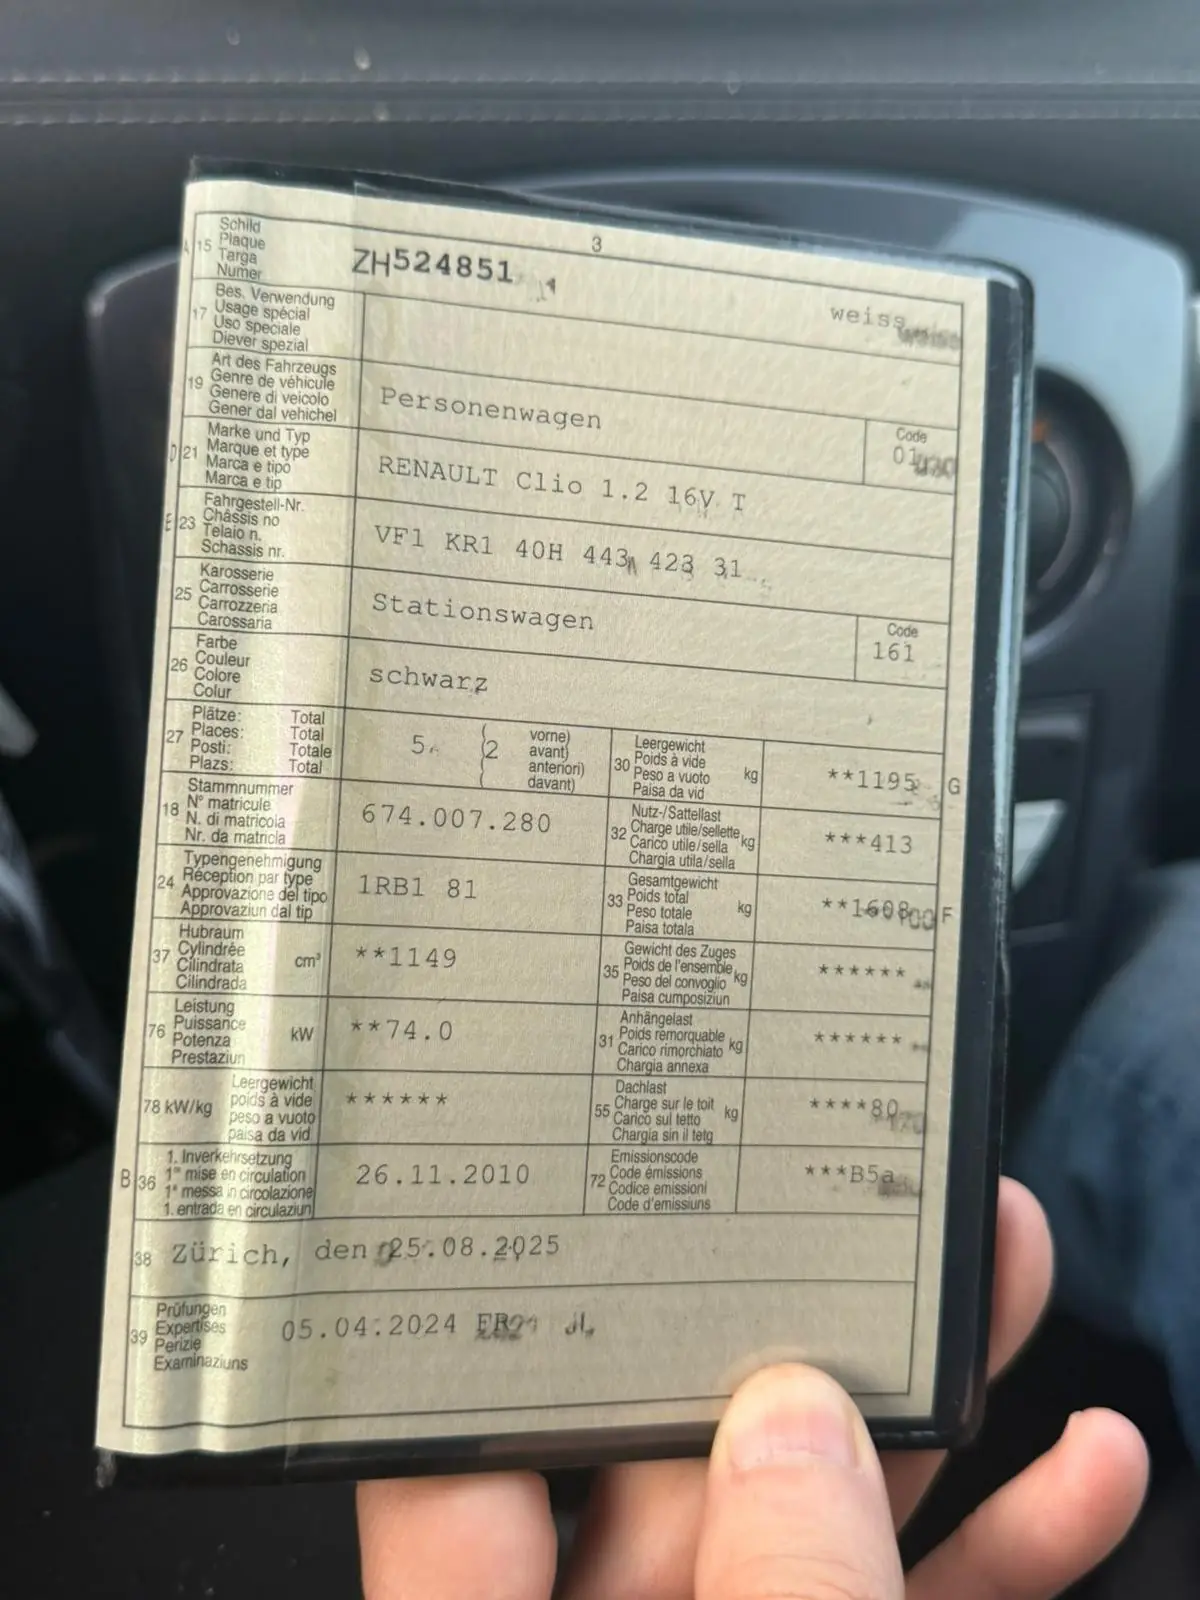 3
A 15 Schild
Plaque
Targa
Numer
ZH524851
weiss
17 Bes. Verwendung
Usage spécial
Uso speciale
Diever spezial
19 Art des Fahrzeugs
Genre de véhicule
Genere di veicolo
Gener dal vehichel
Personenwagen
Code
01
D 21 Marke und Typ
Marque et type
Marca e tipo
Marca e tip
RENAULT Clio 1.2 16V T
E 23 Fahrgestell-Nr.
Châssis no
Telaio n.
Schassis nr.
VF1 KR1 40H 443 423 31
25 Karosserie
Carrosserie
Carrozzeria
Carossaria
Stationswagen
Code
161
26 Farbe
Couleur
Colore
Colur
schwarz
27 Plätze: Total
Places: Total
Posti: Totale
Plazs: Total
5
(2 vorne)
avant)
anteriori)
davant)
30 Leergewicht
Poids à vide
Peso a vuoto
Paisa da vid
kg
**1195
G
18 Stammnummer
N° matricule
N. di matricola
Nr. da matricla
674.007.280
32 Nutz-/Sattellast
Charge utile/sellette
Carico utile/sella
Chargia utila/sella
kg
***413
24 Typengenehmigung
Réception par type
Approvazione del tipo
Approvaziun dal tip
1RB1 81
33 Gesamtgewicht
Poids total
Peso totale
Paisa totala
kg
**1608
F
37 Hubraum
Cylindrée
Cilindrata
Cilindrada
cm³
**1149
35 Gewicht des Zuges
Poids de l'ensemble
Peso del convoglio
Paisa cumposiziun
kg
******
76 Leistung
Puissance
Potenza
Prestaziun
kW
**74.0
31 Anhängelast
Poids remorquable
Carico rimorchiato
Chargia annexa
kg
******
78 kW/kg
Leergewicht
poids à vide
peso a vuoto
paisa da vid
******
55 Dachlast
Charge sur le toit
Carico sul tetto
Chargia sin il tetg
kg
****80
B 36 1. Inverkehrsetzung
1re mise en circulation
1a messa in circolazione
1. entrada en circulaziun
26.11.2010
72 Emissionscode
Code émissions
Codice emissioni
Code d'emissiuns
***B5a
38 Zürich, den 25.08.2025
39 Prüfungen
Expertises
Perizie
Examinaziuns
05.04.2024